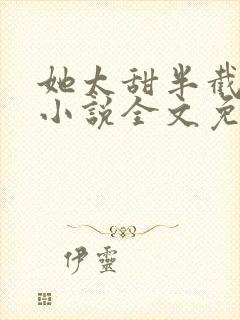 她太甜半截
小說全文免
伊靈